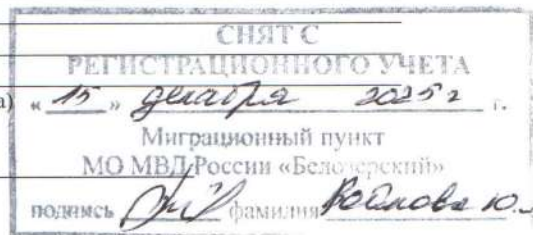 СНЯТ С
РЕГИСТРАЦИОННОГО УЧЕТА
а) « 15 » декабря 2025 г г.
Миграционный пункт
МО МВД России «Белозерский»
подпись фамилия Ю.